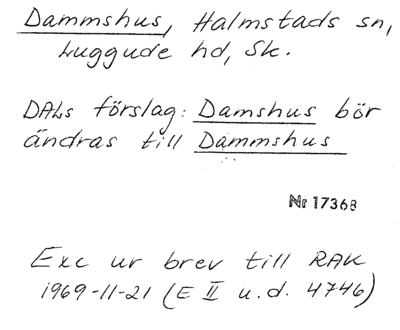 Dammshus, Halmstads sn,
Luggude hd, Sk.
DALs förslag: Damshus bör
ändras till Dammshus
Nr 17368
Exc ur brev till RAK
1969-11-21 (E II u.d. 4746)